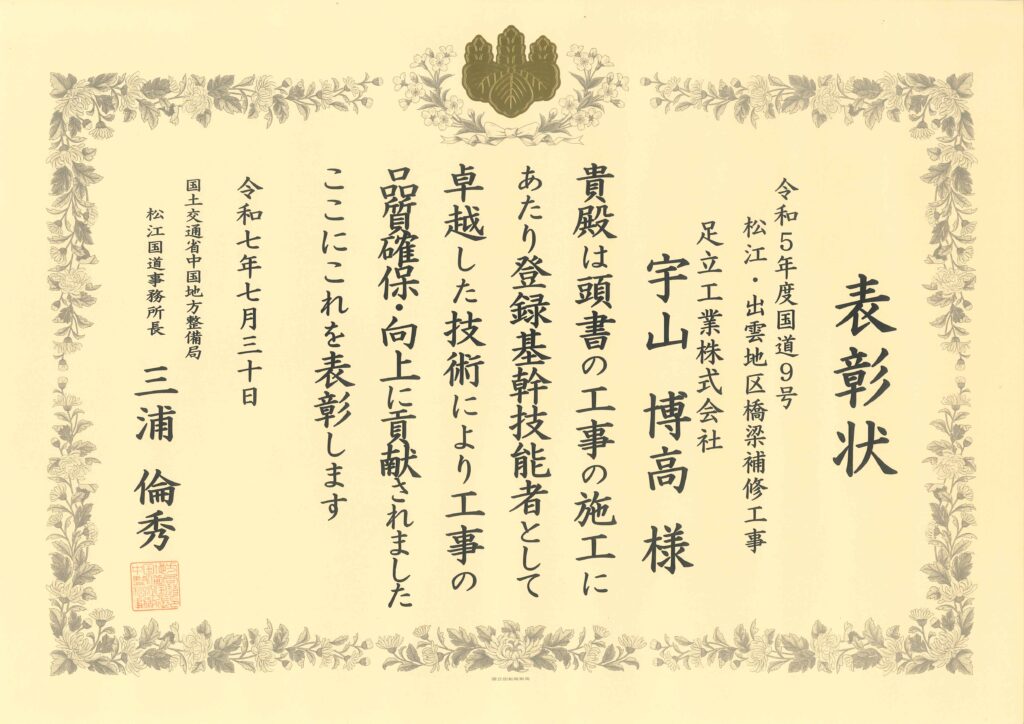 表彰状
令和5年度国道9号
松江・出雲地区橋梁補修工事
足立工業株式会社
宇山 博高 様
貴殿は頭書の工事の施工に
あたり登録基幹技能者として
卓越した技術により工事の
品質確保・向上に貢献されました
ここにこれを表彰します
令和七年七月三十日
国土交通省中国地方整備局
松江国道事務所長 三浦 倫秀